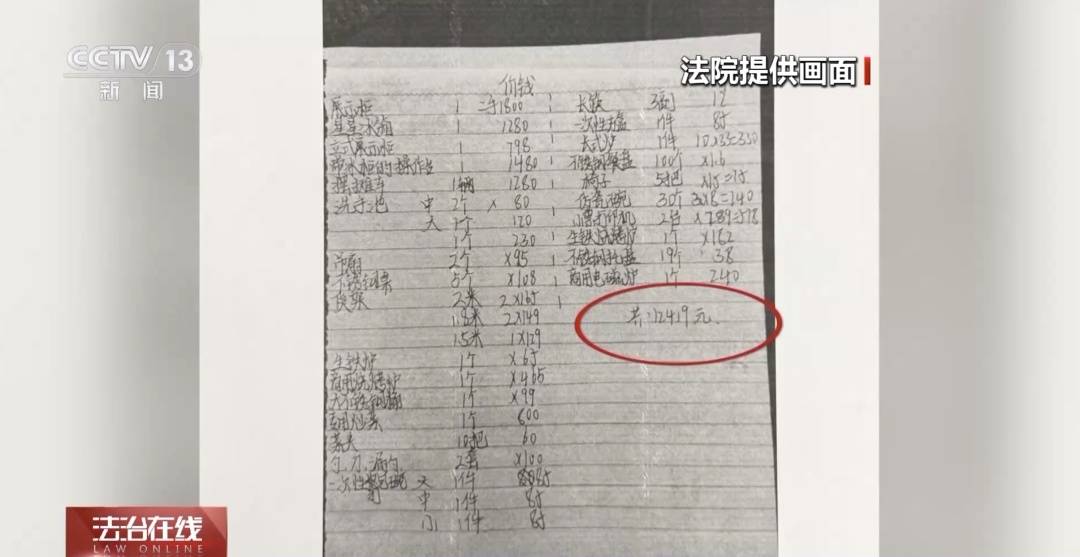 CCTV 13
新闻
法院提供画面
价钱
展示柜 1 二手1800
星星冰箱 1 1280
立式展示柜 1 798
带水柜的操作台 1 1480
摆摊车 1辆 1280
洗手池 中 2个 × 80
大 1个 120
1个 230
2个 ×95
5个 ×108
货架 2米 2×165
1.8米 2×149
1.5米 1×129
生铁炉 1个 ×65
商用烧烤炉 1个 ×465
大不锈钢桶 1个 ×99
商用灶 1个 600
菜夹 10把 60
勺、刀、漏勺 2套 ×100
一次性 大 1件 85
中 1件 85
小 1件 85
长筷 3 12
一次性 1件 85
1件 10×33=330
不锈钢餐盘 100个 ×1.6
椅子 5把 ×15=75
仿瓷碗 30个 30×8=240
小票打印机 2台 ×289=578
生铁烧烤炉 1个 ×162
不锈钢托盘 1个 38
商用电磁炉 1个 240
共:12419元.
法治在线
LAW ONLINE